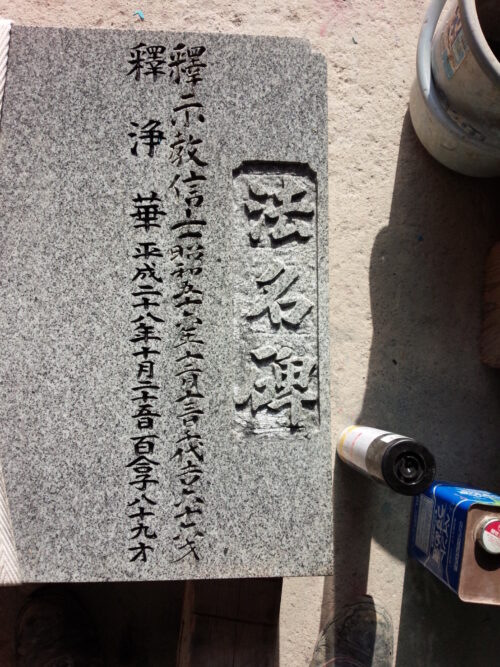 法名碑
釋示教信士昭和五十六年十二月十三日千代吉六十六才
釋浄華平成二十八年十月二十五日百合子八十九才